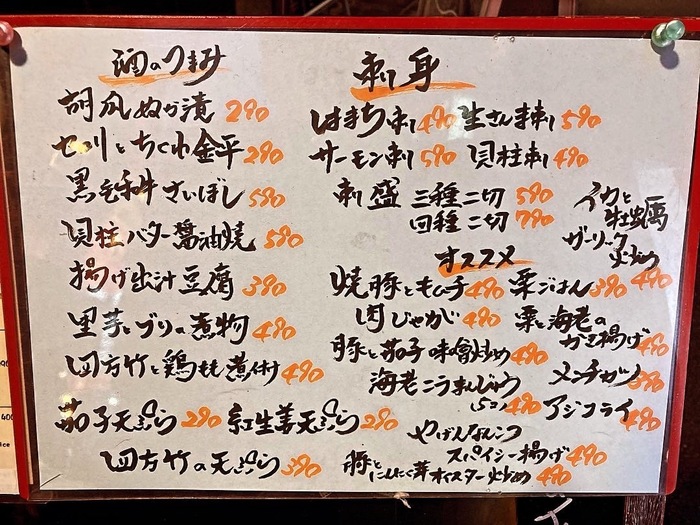 酒のつまみ
胡瓜ぬか漬 290
セロリとちくわ金平 290
黒毛和牛さいぼし 590
貝柱バター醤油焼 590
揚げ出汁豆腐 390
里芋とブリの煮物 490
四方竹と鶏もも煮付け 490
茄子天ぷら 290 紅生姜天ぷら 290
四方竹の天ぷら 390
刺身
はまち刺 490 生さんま刺 590
サーモン刺 590 貝柱刺 490
刺盛 三種二切 590
四種二切 790
イカと
牡蠣
ガーリック
炒め 490
オススメ
焼豚とキムチ 490 栗ごはん 390
肉じゃが 490 栗と海老の
かき揚げ 490
豚と茄子味噌炒め 490
海老こうまんじゅう
(5コ) 490
メンチカツ 390
アジフライ 490
やげんなんこつ
スパイシー揚げ 490
豚と
にんにく芽オイスター炒め 490